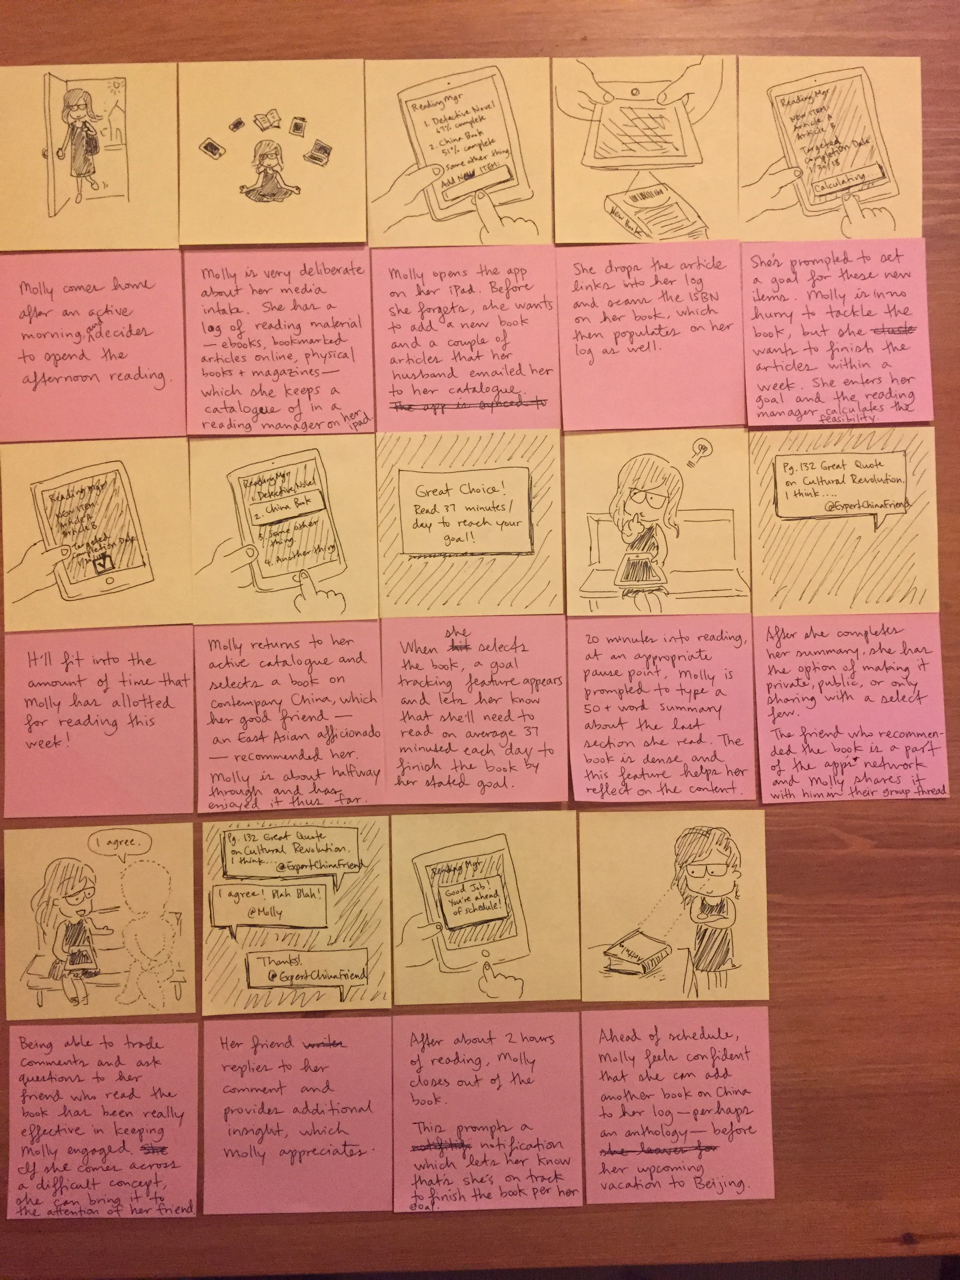 Reading Mgr
1. Detective Novel
67% complete
2. China Book
51% complete
3. Some other thing
Add New ITEM:
New Book
Reading Mgr
NEW ITEM
Article A
Article B
Targeted
Completion Date
Calculating...
Molly comes home
after an active
morning, and decides
to spend the
afternoon reading.
Molly is very deliberate
about her media
intake. She has a
log of reading material
— ebooks, bookmarked
articles online, physical
books + magazines—
which she keeps a
catalogue of in a
reading manager on her
iPad
Molly opens the app
on her iPad. Before
she forgets, she wants
to add a new book
and a couple of
articles that her
husband emailed her
to her catalogue.
The app is synced to
She drops the article
links into her log
and scans the ISBN
on her book, which
then populates on her
log as well.
She's prompted to set
a goal for these new
items. Molly is in no
hurry to tackle the
book, but she
wants to finish the
articles within a
week. She enters her
goal and the reading
manager calculates the
feasibility.
Reading Mgr
NEW ITEM
Article A
Article B
Targeted
Completion Date
Reading Mgr
1. Detective Novel
2. China Book
3. Some other
thing
4. Another thing
Great Choice!
Read 37 minutes/
day to reach your
goal!
Pg. 132 Great Quote
on Cultural Revolution.
I think....
@ExpertChinaFriend
It'll fit into the
amount of time that
Molly has allotted
for reading this
week!
Molly returns to her
active catalogue and
selects a book on
contempary China, which
her good friend —
an East Asian afficionado
— recommended her.
Molly is about halfway
through and has
enjoyed it thus far.
When she selects
the book, a goal
tracking feature appears
and lets her know
that she'll need to
read on average 37
minutes each day to
finish the book by
her stated goal.
20 minutes into reading,
at an appropriate
pause point, Molly is
prompted to type a
50+ word summary
about the last
section she read. The
book is dense and
this feature helps her
reflect on the content.
After she completes
her summary, she has
the option of making it
private, public, or only
sharing with a select
few.
The friend who recommen-
ded the book is a part
of the apps' network
and Molly shares it
with him on their group thread.
I agree.
Pg. 132 Great Quote
on Cultural Revolution.
I think....
@ExpertChinaFriend
I agree! Blah Blah!
@Molly
Thanks!
@ExpertChinaFriend
Reading Mgr
Good Job!
You're ahead
of schedule!
Being able to trade
comments and ask
questions to her
friend who read the
book has been really
effective in keeping
Molly engaged. She
If she comes across
a difficult concept,
she can bring it to
the attention of her friend.
Her friend writes
replies to her
comment and
provides additional
insight, which
Molly appreciates.
After about 2 hours
of reading, Molly
closes out of the
book.
This prompts a
notification
which lets her know
that's she's on track
to finish the book per her
goal.
Ahead of schedule,
Molly feels confident
that she can add
another book on China
to her log — perhaps
an anthology — before
she leaves for
her upcoming
vacation to Beijing.